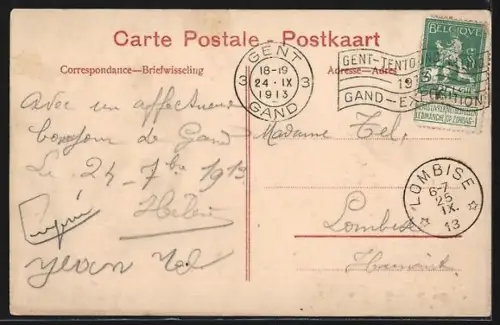 Carte Postale - Postkaart
Correspondance—Briefwisseling
Adresse—Adres
3 GENT 3
18-19
24 · IX
1913
GAND
GENT-TENTO
1913
GAND-EXPOSITION
BELGIQUE
Avec un affectueux
bonjour de Gand
Le 24 - 7bre 1913
Hélène
yvan Tel
Madame Tel,
Lombise
Hainaut
LOMBISE
6-7
25
IX.
13